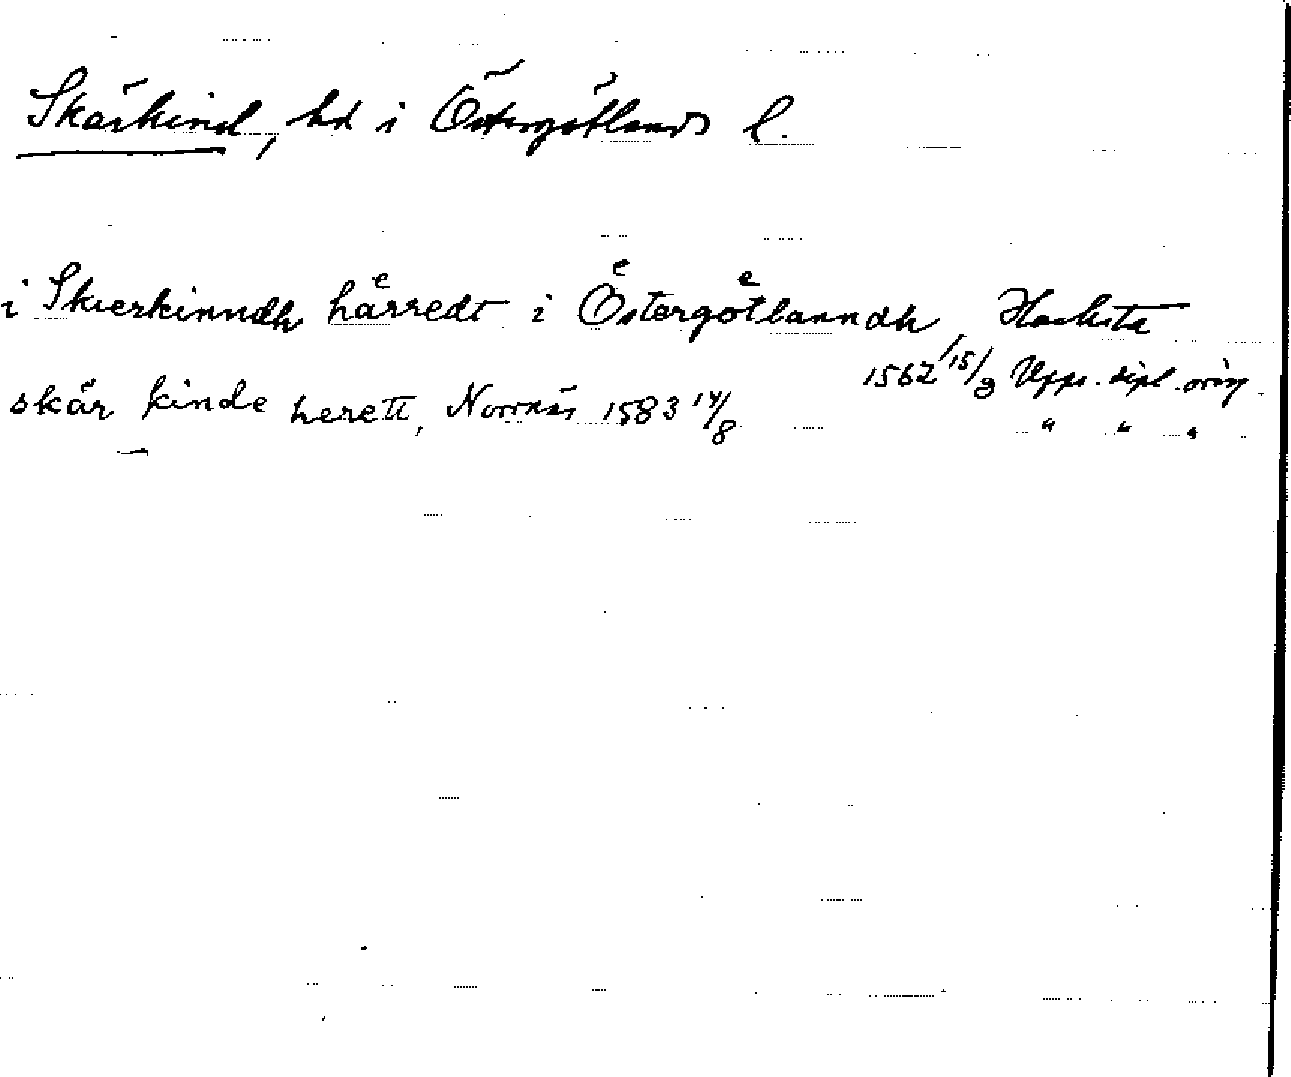 Skärkind, hd i Östergötlands l.
i Skierkinndh hår̊redt i Östergötlanndh, Hacksta
1562 15/3 Upps. dipl. orig.
skär kinde herett, Norrnäs 1583 14/8 " " "